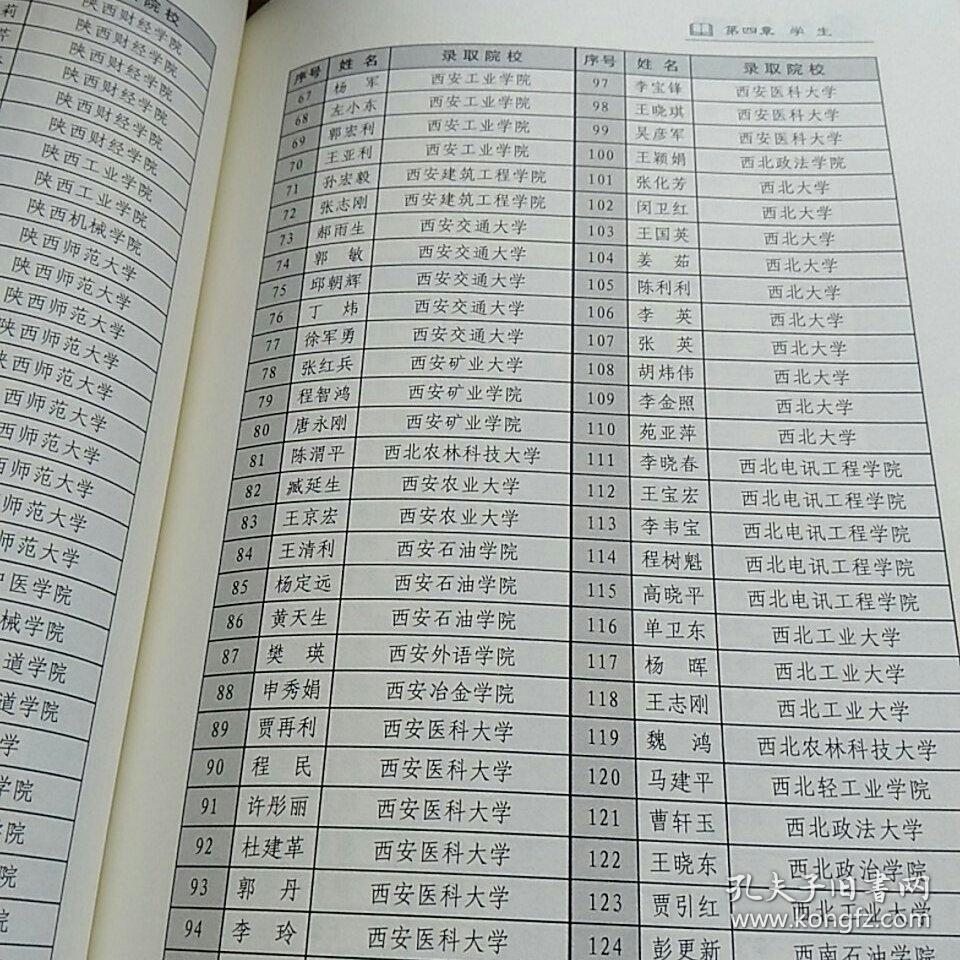 录取院校
莉 陕西财经学院
陕西财经学院
陕西财经学院
陕西财经学院
陕西财经学院
陕西工业学院
陕西工业学院
陕西机械学院
陕西师范大学
陕西师范大学
陕西师范大学
陕西师范大学
西师范大学
西师范大学
西师范大学
西师范大学
师范大学
师范大学
中医学院
械学院
道学院
道学院
学
学院
学院
院
院
第四章 学生
序号 姓名 录取院校
67 杨军 西安工业学院
68 左小东 西安工业学院
69 郭宏利 西安工业学院
70 王亚利 西安工业学院
71 孙宏毅 西安建筑工程学院
72 张志刚 西安建筑工程学院
73 郝雨生 西安交通大学
74 郭敏 西安交通大学
75 邱朝辉 西安交通大学
76 丁炜 西安交通大学
77 徐军勇 西安交通大学
78 张红兵 西安矿业大学
79 程智鸿 西安矿业学院
80 唐永刚 西安矿业学院
81 陈渭平 西北农林科技大学
82 臧延生 西安农业大学
83 王京宏 西安农业大学
84 王清利 西安石油学院
85 杨定远 西安石油学院
86 黄天生 西安石油学院
87 樊瑛 西安外语学院
88 申秀娟 西安冶金学院
89 贾再利 西安医科大学
90 程民 西安医科大学
91 许彤丽 西安医科大学
92 杜建革 西安医科大学
93 郭丹 西安医科大学
94 李玲 西安医科大学
序号 姓名 录取院校
97 李宝锋 西安医科大学
98 王晓琪 西安医科大学
99 吴彦军 西安医科大学
100 王颖娟 西北政法学院
101 张化芳 西北大学
102 闵卫红 西北大学
103 王国英 西北大学
104 姜茹 西北大学
105 陈利利 西北大学
106 李英 西北大学
107 张英 西北大学
108 胡炜伟 西北大学
109 李金照 西北大学
110 苑亚萍 西北大学
111 李晓春 西北电讯工程学院
112 王宝宏 西北电讯工程学院
113 李韦宝 西北电讯工程学院
114 程树魁 西北电讯工程学院
115 高晓平 西北电讯工程学院
116 单卫东 西北工业大学
117 杨晖 西北工业大学
118 王志刚 西北工业大学
119 魏鸿 西北农林科技大学
120 马建平 西北轻工业学院
121 曹轩玉 西北政法大学
122 王晓东 西北政治学院
123 贾引红 西北工业大学
124 彭更新 西南石油学院
孔夫子旧书网
www.kongfz.com